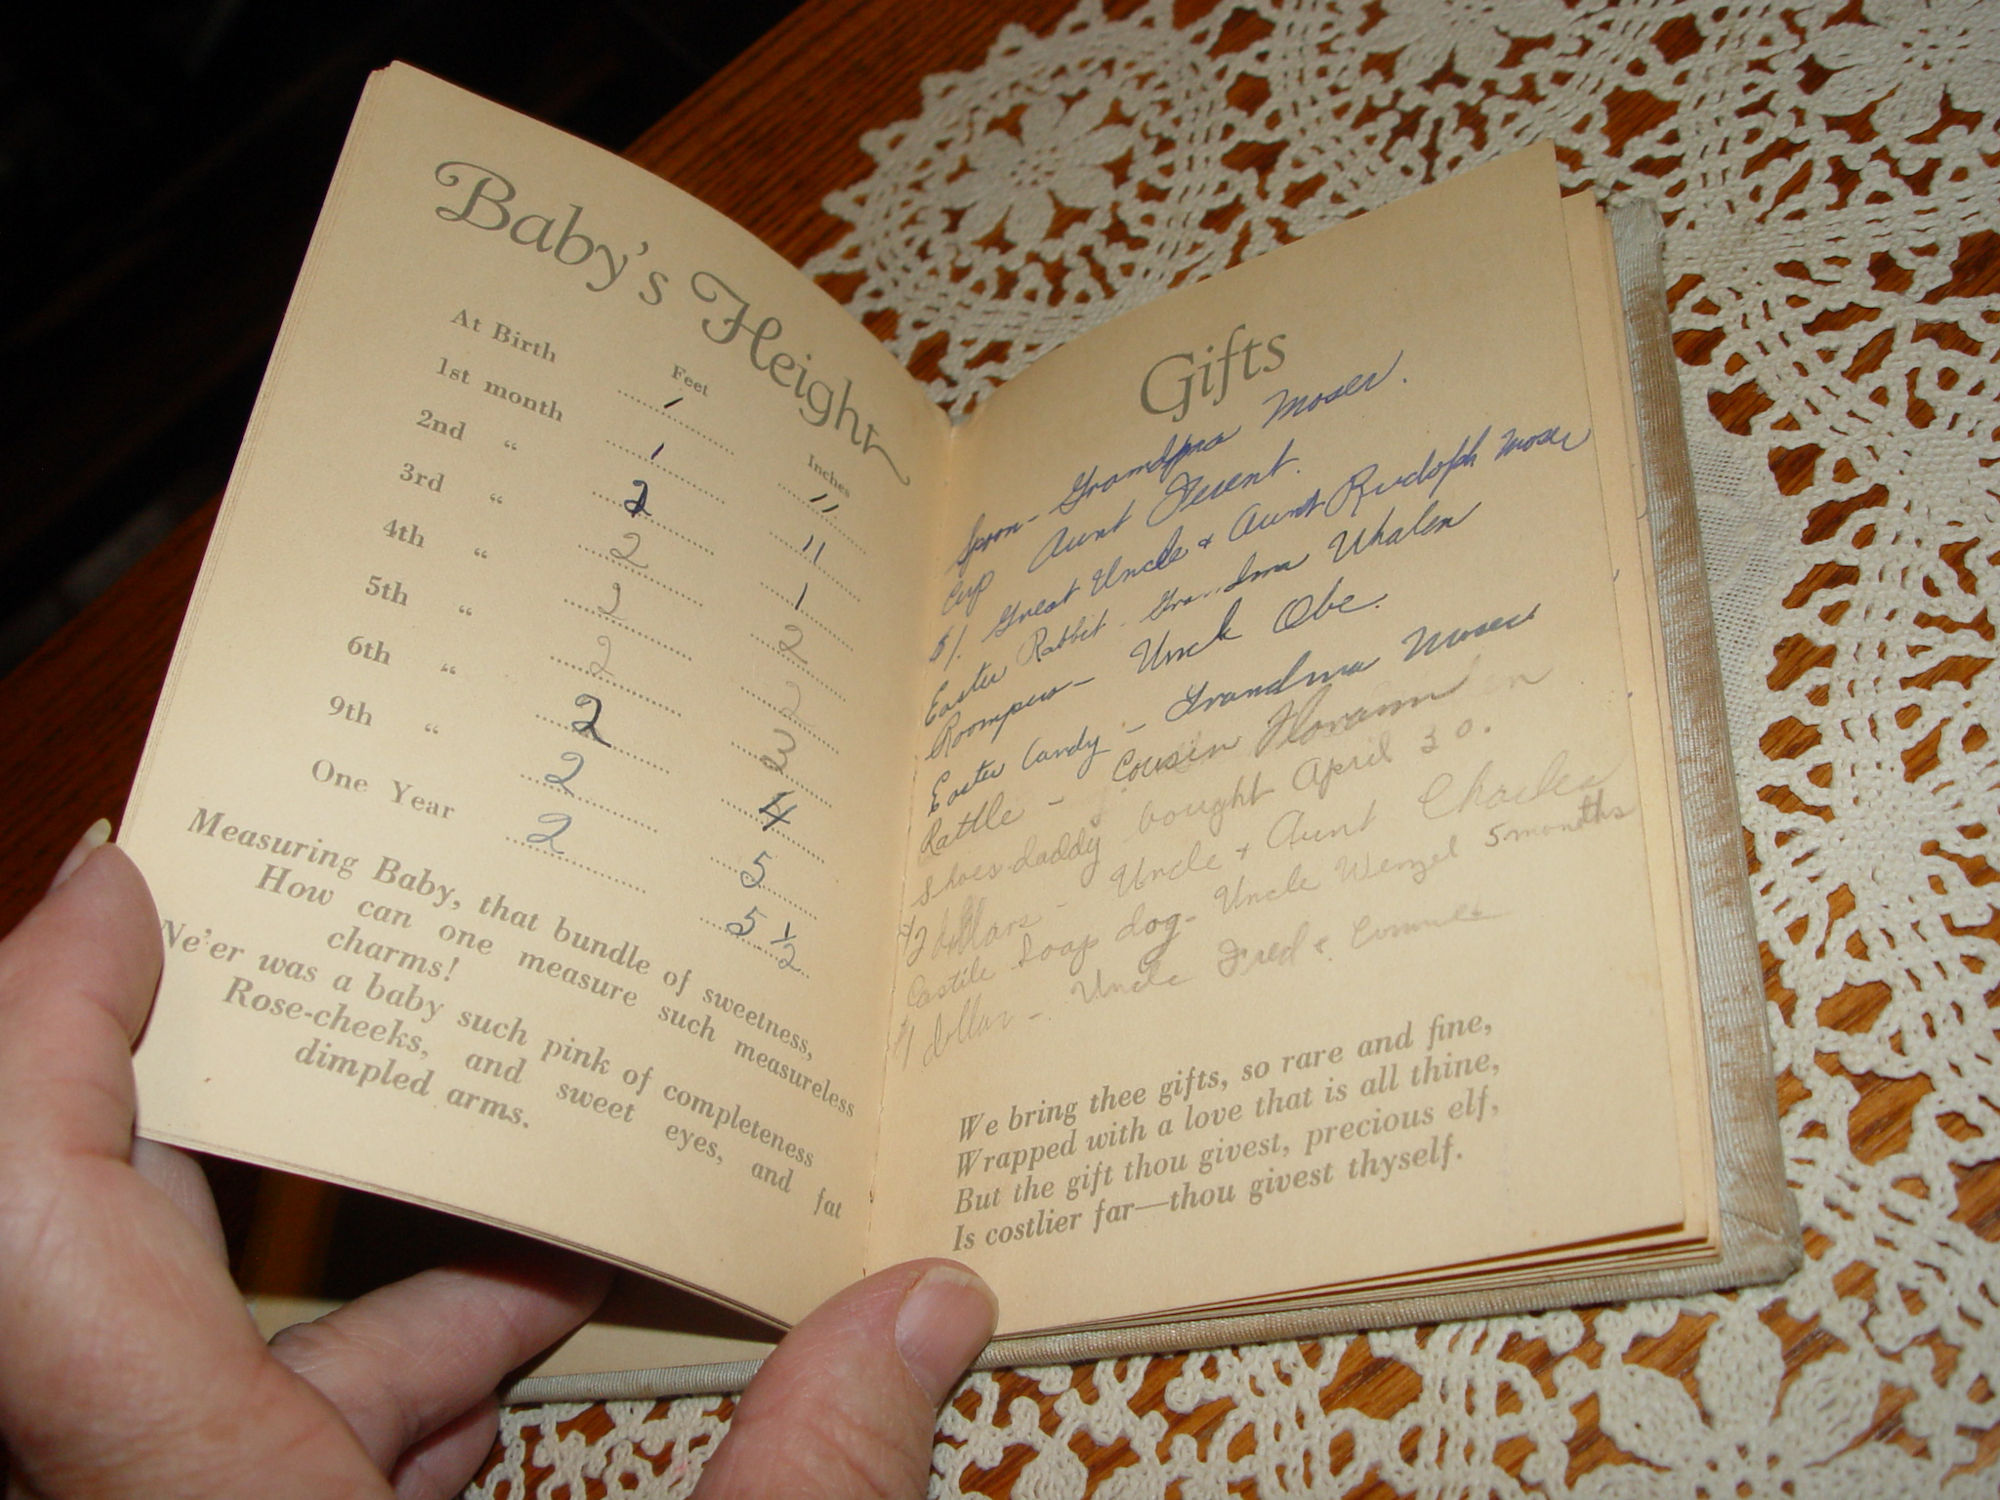 Baby's Height
Feet Inches
At Birth 1 11
1st month 1 11
2nd " 2 1
3rd " 2 2
4th " 2 2
5th " 2 3
6th " 2 4
9th " 2 5
One Year 2 5 1/2
Measuring Baby, that bundle of sweetness,
How can one measure such measureless
charms!
Ne'er was a baby such pink of completeness
Rose-cheeks, and sweet eyes, and fat
dimpled arms.
Gifts
Spoon - Grandpa Moser.
Cup Aunt
$1. Great Uncle + Aunt Rudolph Moser
Easter Rabbit - Grandma Whalen
Rompers - Uncle Obe.
Easter Candy - Grandma Moser
Rattle - Cousin
shoes daddy bought April 30.
$2 dollars - Uncle + Aunt Charles
Castile Soap dog - Uncle Wenzel 5 months
$1 dollar - Uncle Fred +
We bring thee gifts, so rare and fine,
Wrapped with a love that is all thine,
But the gift thou givest, precious elf,
Is costlier far—thou givest thyself.